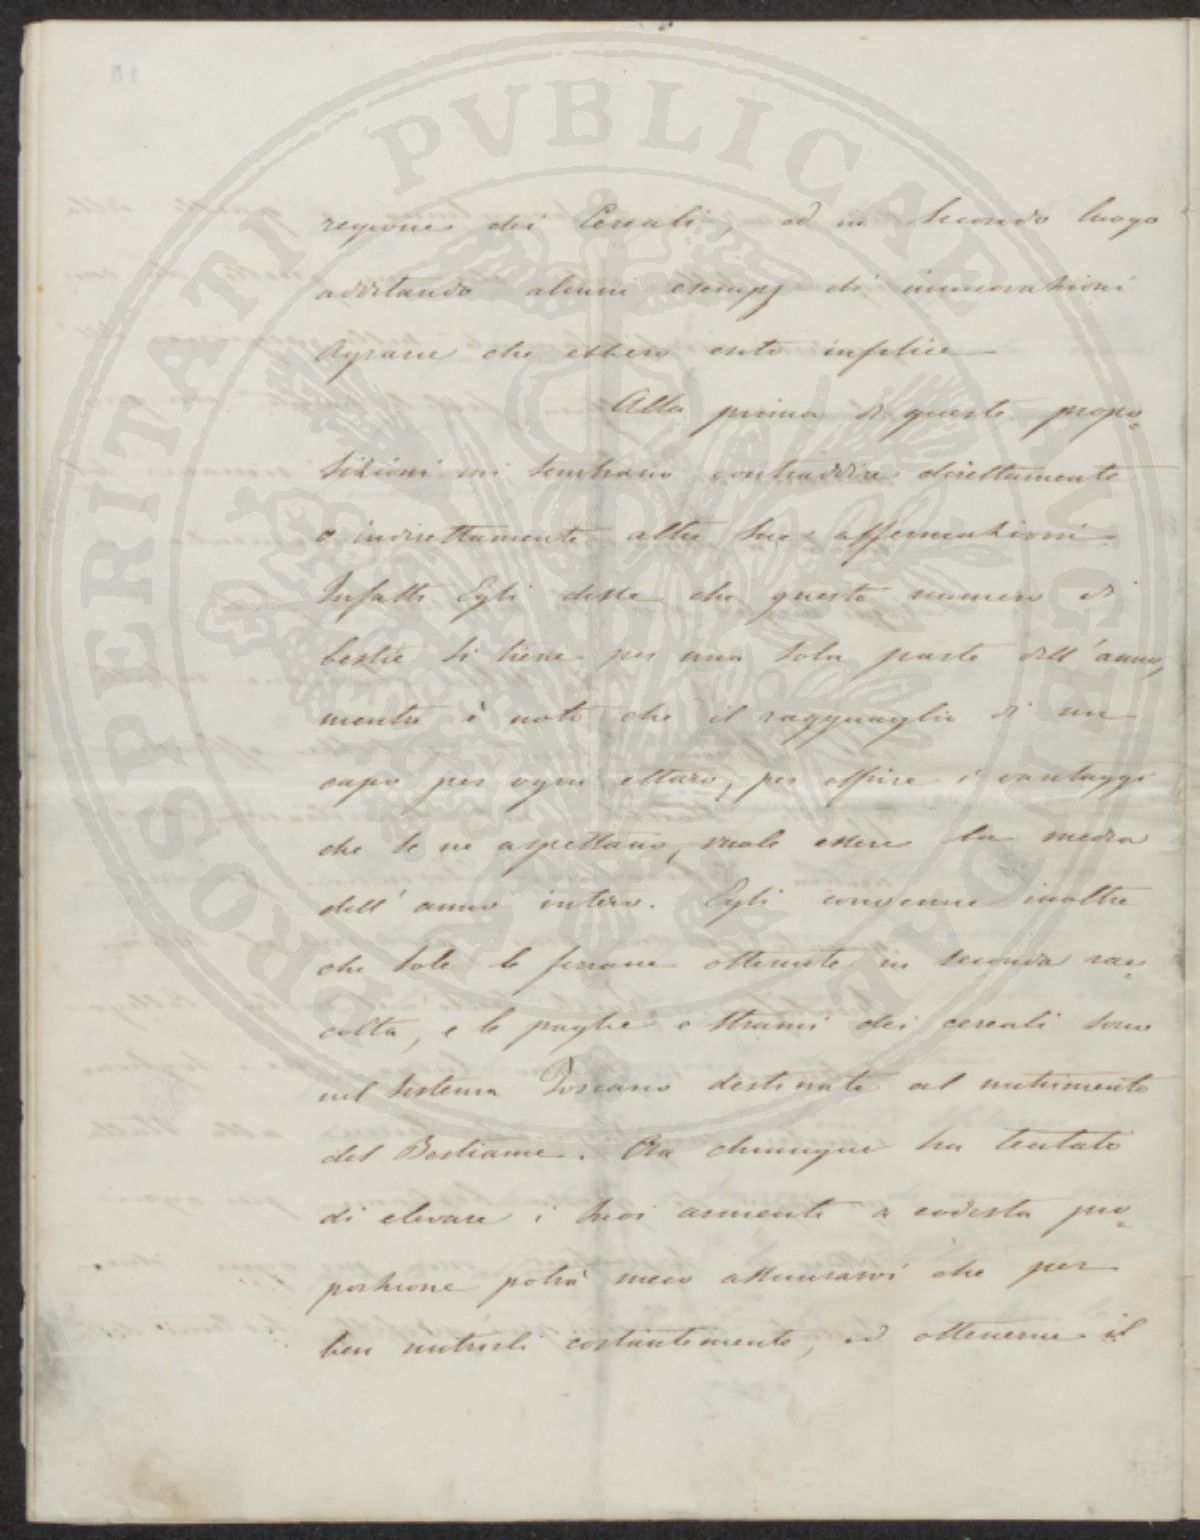 PROSPERITATI PVBLICAE AVGENDAE
regione dei Cereali, ed in secondo luogo
additando alcuni esempj di innovazioni
Agrarie che ebbero esito infelice
Alla prima di queste propo=
sizioni mi sembrano contraddire direttamente
o indirettamente altre sue affermazioni
Infatti Egli disse che questo numero di
bestie si tiene per una sola parte dell'anno,
mentre è noto che il ragguaglio di un
capo per ogni ettaro, per offrire i vantaggi
che se ne aspettano, vuole essere la media
dell'anno intero. Egli convenne inoltre
che sole le ferrane ottenute in seconda rac=
colta, e le paglie e strami dei cereali sono
nel sistema Toscano destinate al nutrimento
del Bestiame. Ora chiunque ha tentato
di elevare i suoi armenti a codesta pro=
porzione potrà meco assicurarvi che per
ben nutrirli costantemente, ed ottenerne il